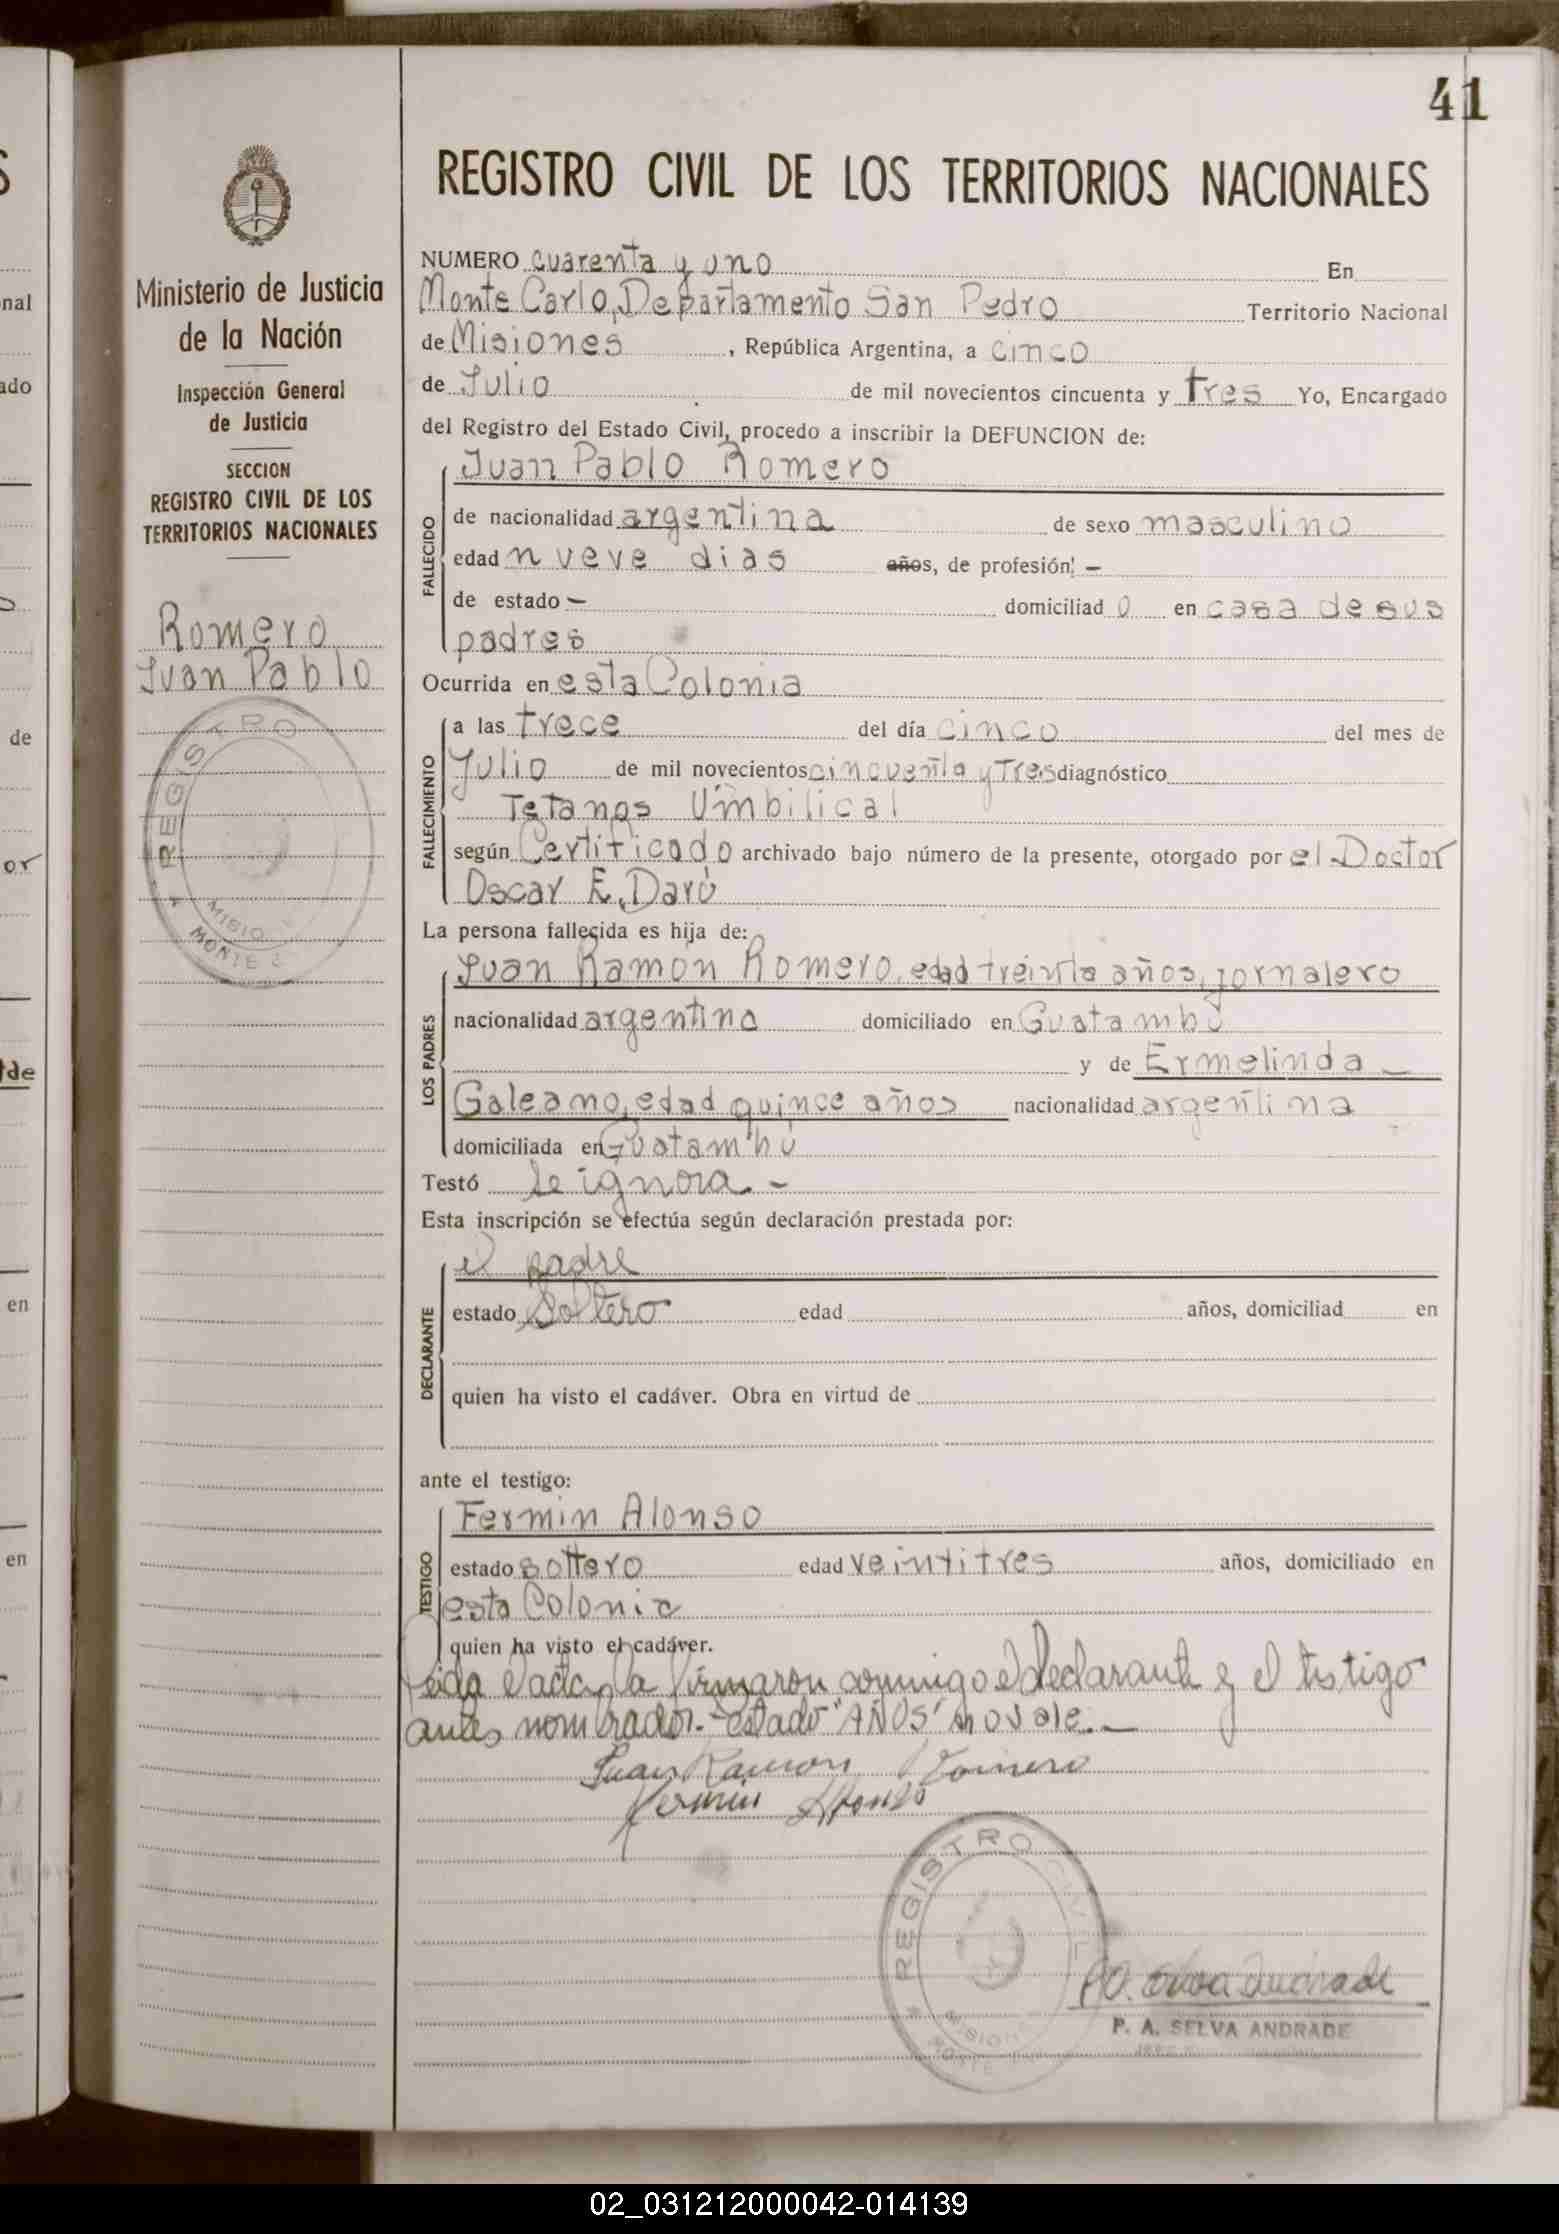 41
REGISTRO CIVIL DE LOS TERRITORIOS NACIONALES
Ministerio de Justicia
de la Nación
Inspección General
de Justicia
SECCION
REGISTRO CIVIL DE LOS
TERRITORIOS NACIONALES
Romero
Juan Pablo
REGISTRO
MISIO
MONTE
NUMERO cuarenta y uno En
Monte Carlo, Departamento San Pedro Territorio Nacional
de Misiones , República Argentina, a cinco
de Julio de mil novecientos cincuenta y tres Yo, Encargado
del Registro del Estado Civil, procedo a inscribir la DEFUNCION de:
FALLECIDO
Juan Pablo Romero
de nacionalidad argentina de sexo masculino
edad nueve dias años, de profesión: —
de estado — domiciliad o en casa de sus
padres
Ocurrida en esta Colonia
FALLECIMIENTO
a las trece del día cinco del mes de
Julio de mil novecientos cincuenta y tres diagnóstico
Tetanos Umbilical
según Certificado archivado bajo número de la presente, otorgado por el Doctor
Oscar E. Daró
La persona fallecida es hija de:
LOS PADRES
Juan Ramón Romero, edad treinta años, jornalero
nacionalidad argentina domiciliado en Guatambú
y de Ermelinda —
Galeano, edad quince años nacionalidad argentina
domiciliada en Guatambú
Testó Se ignora. -
Esta inscripción se efectúa según declaración prestada por:
DECLARANTE
el padre
estado Soltero edad años, domiciliad en
quien ha visto el cadáver. Obra en virtud de
ante el testigo:
TESTIGO
Fermin Alonso
estado soltero edad veintitres años, domiciliado en
esta Colonia
quien ha visto el cadáver.
Leida el acta, la firmaron conmigo el declarante y el testigo
antes nombrados.- estado "AÑOS" no vale. —
Juan Ramon Romero
Fermin Alonso
REGISTRO CIVIL
MISIONE
MONTE
P. A. SELVA ANDRADE
nal
ado
de
or
de
en
en
02_031212000042-014139